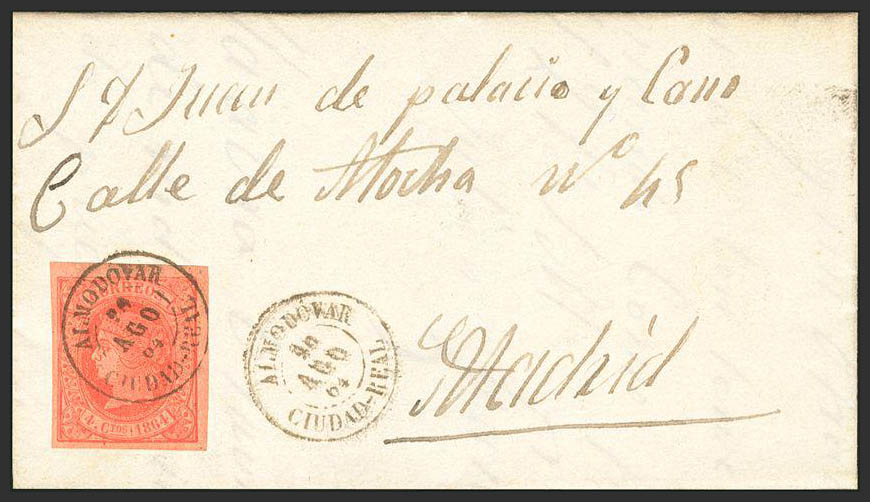 S D Juan de palacio y Cano
Calle de Atocha nº 45
Madrid
CORREOS
4 CTOS 1864
ALMODÓVAR
AGO
64
CIUDAD-REAL
ALMODÓVAR
AGO
64
CIUDAD-REAL